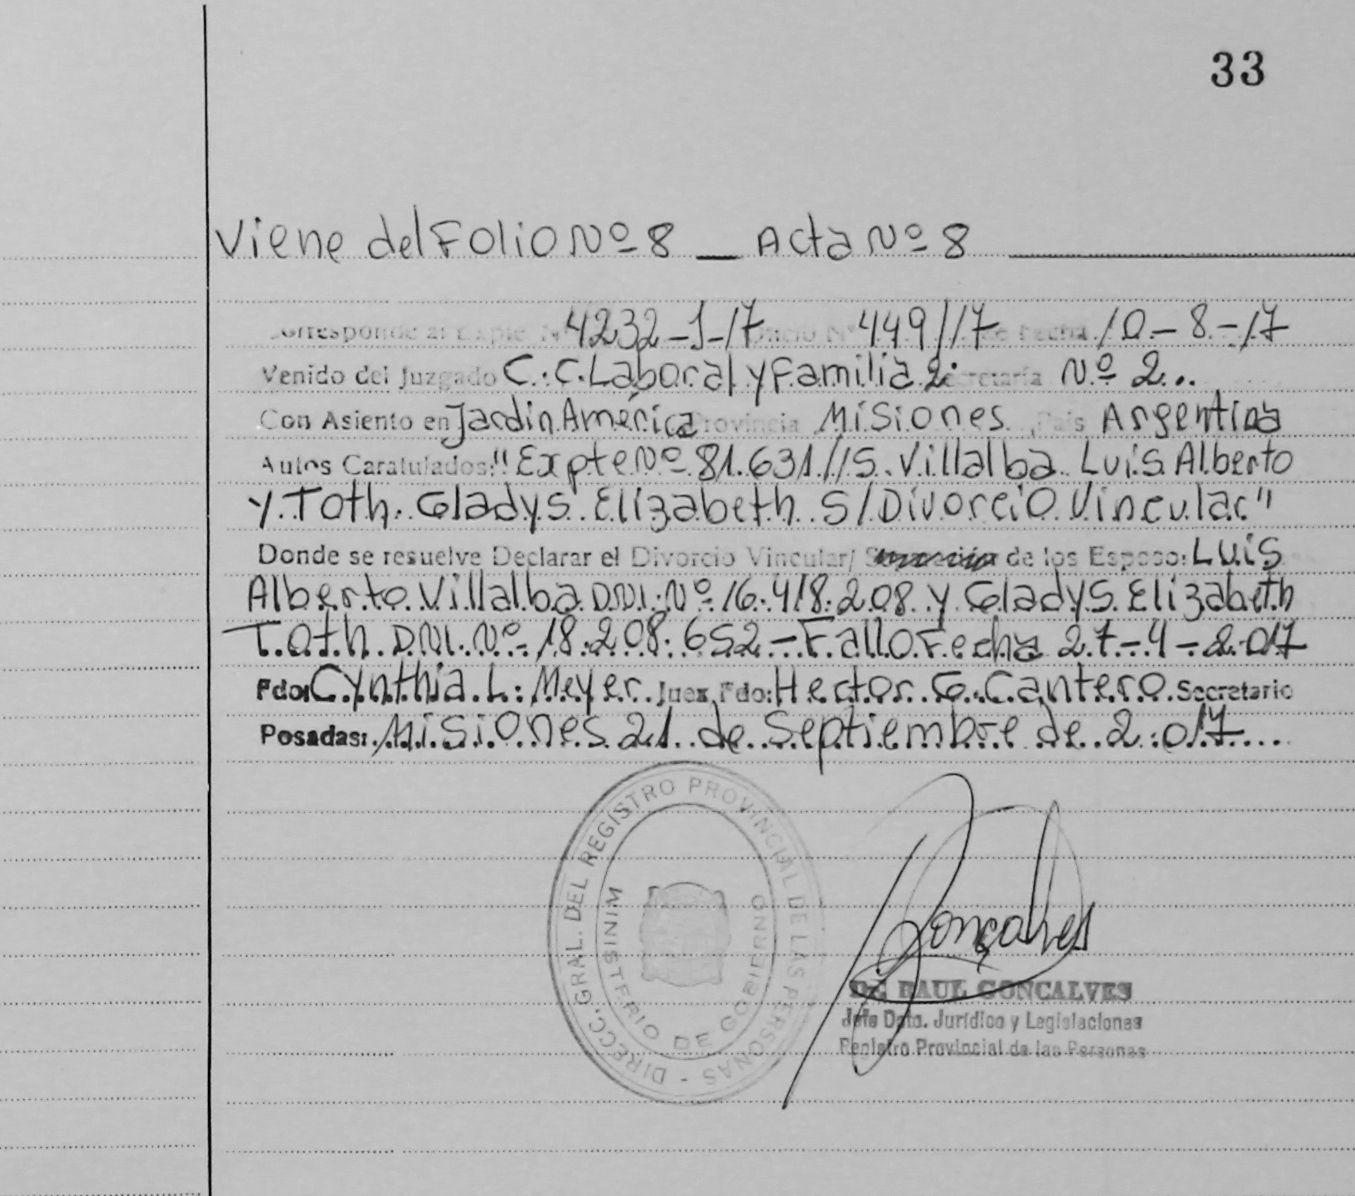 33
Viene del Folio Nº 8 _ Acta Nº 8
Corresponde al Expte Nº 4232-1-17 Oficio Nº 449/17 de Fecha 10-8-17
Venido del Juzgado C.C. Laboral y Familia 2. Secretaría Nº 2...
Con Asiento en Jardin América Provincia Misiones País Argentina
Autos Caratulados: "Expte Nº 81.631/15. Villalba Luis Alberto
y Toth Gladys Elizabeth S/Divorcio Vincular"
Donde se resuelve Declarar el Divorcio Vincular/ de los Esposo: Luis
Alberto Villalba DNI. Nº 16.418.208 y Gladys Elizabeth
Toth DNI. Nº 18.208.652 - Fallo Fecha 27-4-2017
Fdo: Cynthia L. Meyer Juez, Fdo: Hector G. Cantero Secretario
Posadas: Misiones 21 de Septiembre de 2.017....
DIRECC. GRAL. DEL REGISTRO PROVINCIAL DE LAS PERSONAS -
MINISTERIO DE GOBIERNO
Gonçalves
RAUL GONCALVES
Jefe Dpto. Jurídico y Legislaciones
Registro Provincial de las Personas